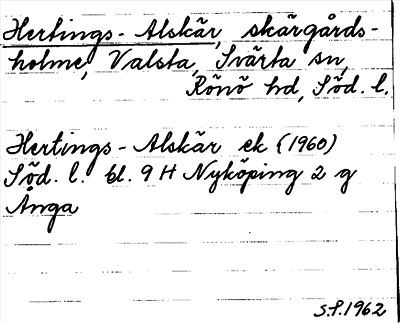 Hertings-Alskär, skärgårds-
holme, Valsta, Svärta sn,
Rönö hd, Söd. l.
Hertings-Alskär ek (1960)
Söd. l. bl. 9 H Nyköping 2 g
Ånga
S.P. 1962